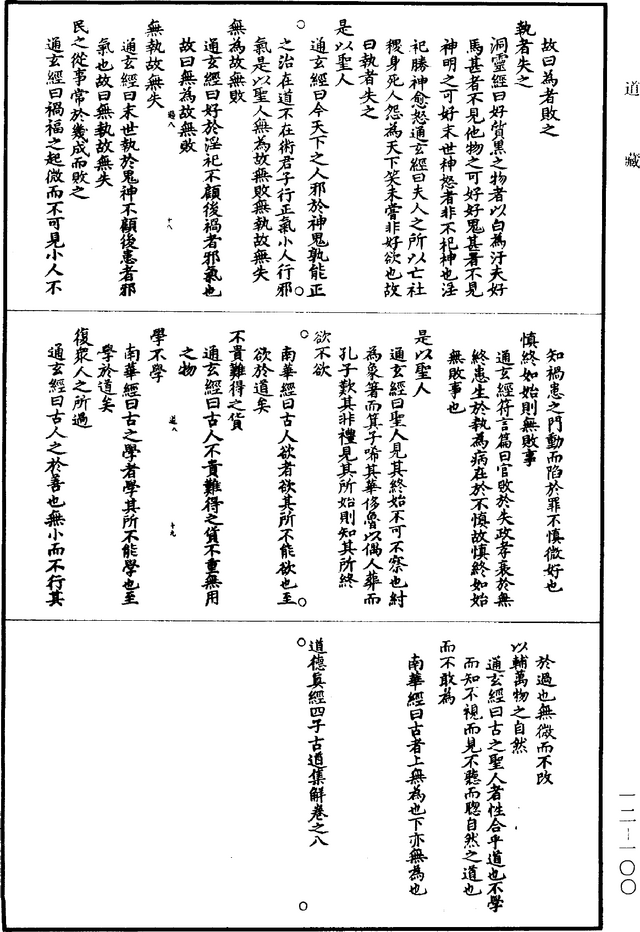 道藏
故曰為者敗之
執者失之
洞靈經曰好質黑之物者以白為汙夫好
馬甚者不見他物之可好好鬼甚者不見
神明之可好末世神怒者非不祀神也淫
祀勝神愈怒通玄經曰夫人之所以亡社
稷身死人怨為天下笑未嘗非好欲也故
曰執者失之
是以聖人
通玄經曰今天下之人邪於神鬼孰能正
之治在道不在術君子行正氣小人行邪
氣是以聖人無為故無敗無執故無失
無為故無敗
通玄經曰好於淫祀不顧後禍者邪氣也
故曰無為故無敗
十八
無執故無失
通玄經曰末世執於鬼神不顧後患者邪
氣也故曰無執故無失
民之從事常於幾成而敗之
通玄經曰禍福之起微而不可見小人不
知禍患之門動而陷於罪不慎微好也
慎終如始則無敗事
通玄經符言篇曰官敗於失政孝衰於無
終患生於執為病在於不慎故慎終如始
無敗事也
是以聖人
通玄經曰聖人見其終始不可不察也紂
為象箸而箕子唏其華侈魯以偶人葬而
孔子歎其非禮見其所始則知其所終
欲不欲
南華經曰古人欲者欲其所不能欲也至
欲於道矣
不貴難得之貨
通玄經曰古人不貴難得之貨不重無用
之物
道八 十九
學不學
南華經曰古之學者學其所不能學也至
學於道矣
復衆人之所過
通玄經曰古人之於善也無小而不行其
於過也無微而不改
以輔萬物之自然
通玄經曰古之聖人者性合乎道也不學
而知不視而見不聽而聰自然之道也
而不敢為
南華經曰古者上無為也下亦無為也
道德真經四子古道集解卷之八
一二—一〇〇